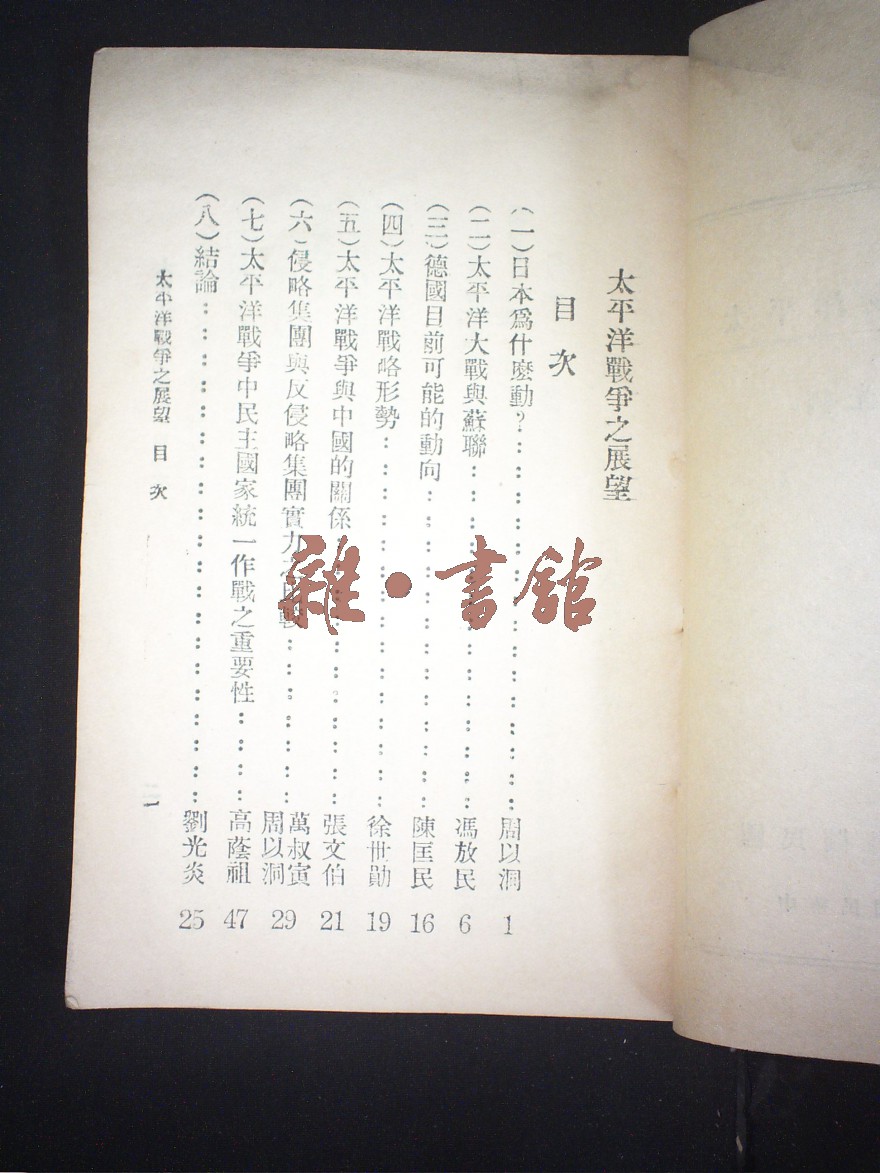 太平洋戰爭之展望
目次
(一)日本爲什麼動?……周以洞 1
(二)太平洋大戰與蘇聯……馮放民 6
(三)德國目前可能的動向……陳匡民 16
(四)太平洋戰略形勢……徐世勛 19
(五)太平洋戰爭與中國的關係……張文伯 21
(六)侵略集團與反侵略集團實力之比較……萬叔寅 周以洞 29
(七)太平洋戰爭中民主國家統一作戰之重要性……高蔭祖 47
(八)結論……劉光炎 25
太平洋戰爭之展望 目次
一
雜·書館